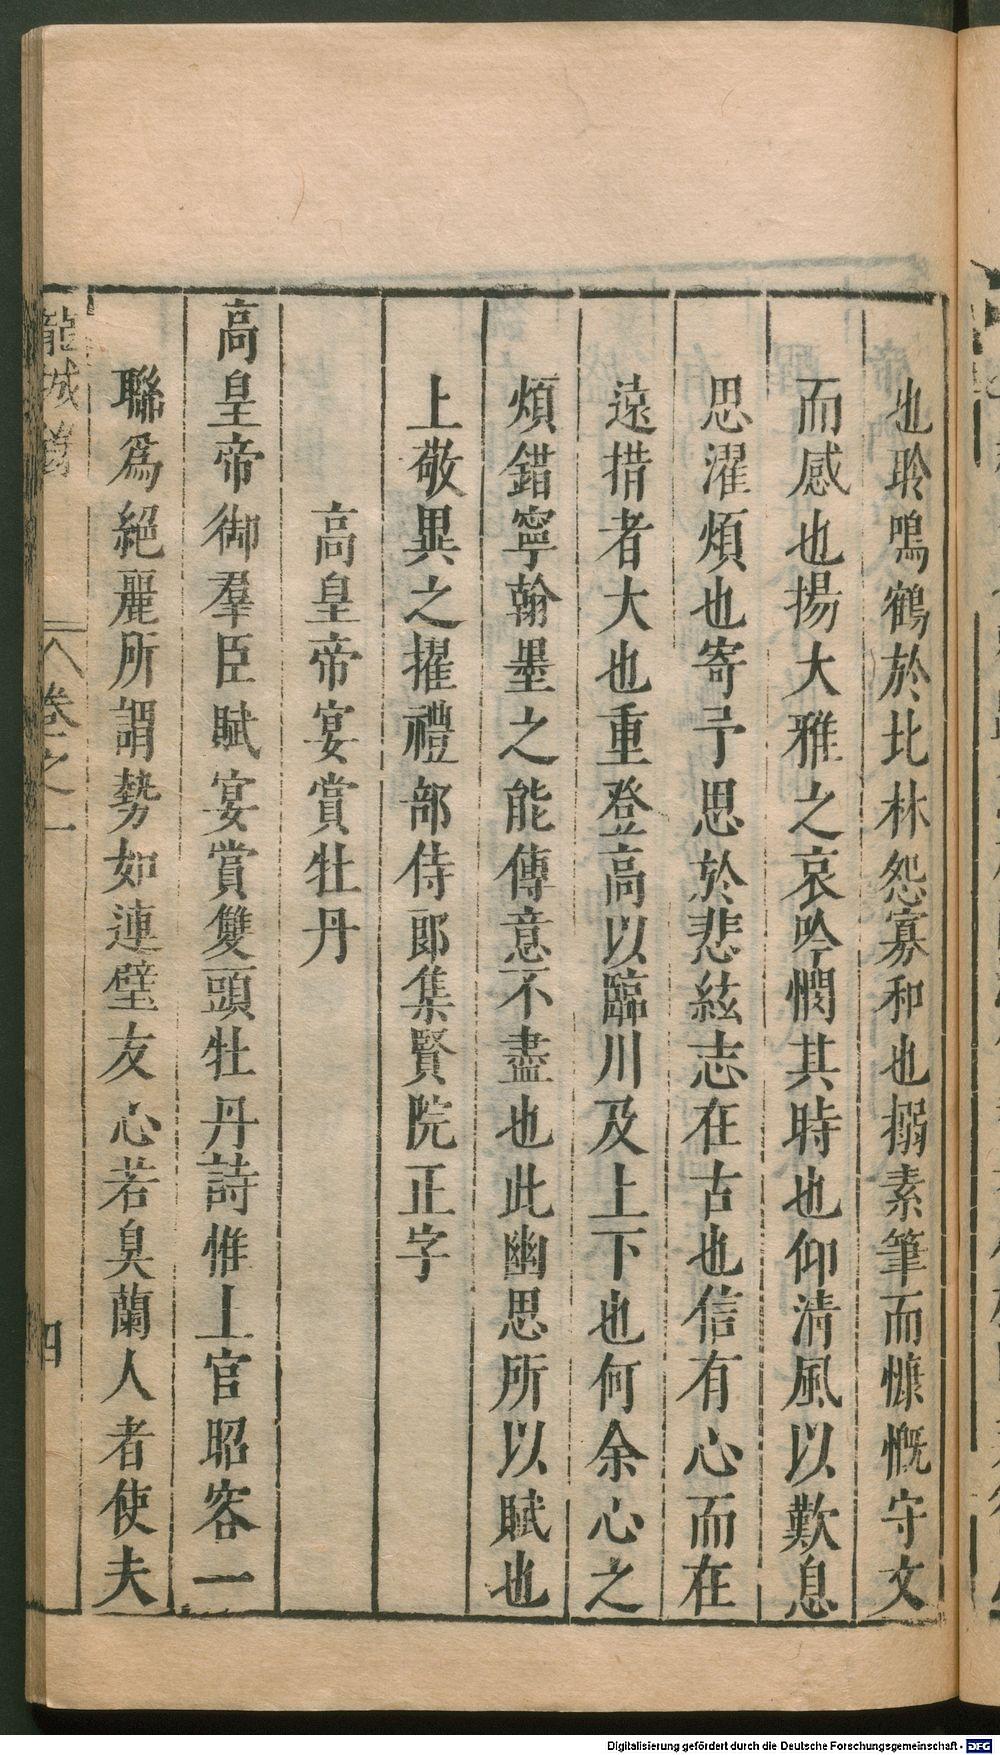 也聆鳴鶴於北林怨寡和也搦素筆而慷慨守文
而感也揚大雅之哀吟憫其時也仰淸風以歎息
思濯煩也寄予思於悲絃志在古也信有心而在
遠措者大也重登高以臨川及上下也何余心之
煩錯寧翰墨之能傳意不盡也此幽思所以賦也
上敬異之擢禮部侍郎集賢院正字
高皇帝宴賞牡丹
高皇帝御羣臣賦宴賞雙頭牡丹詩惟上官昭容一
聯爲絕麗所謂勢如連璧友心若臭蘭人者使夫
龍城
卷之一
四
Digitalisierung gefördert durch die Deutsche Forschungsgemeinschaft - DFG